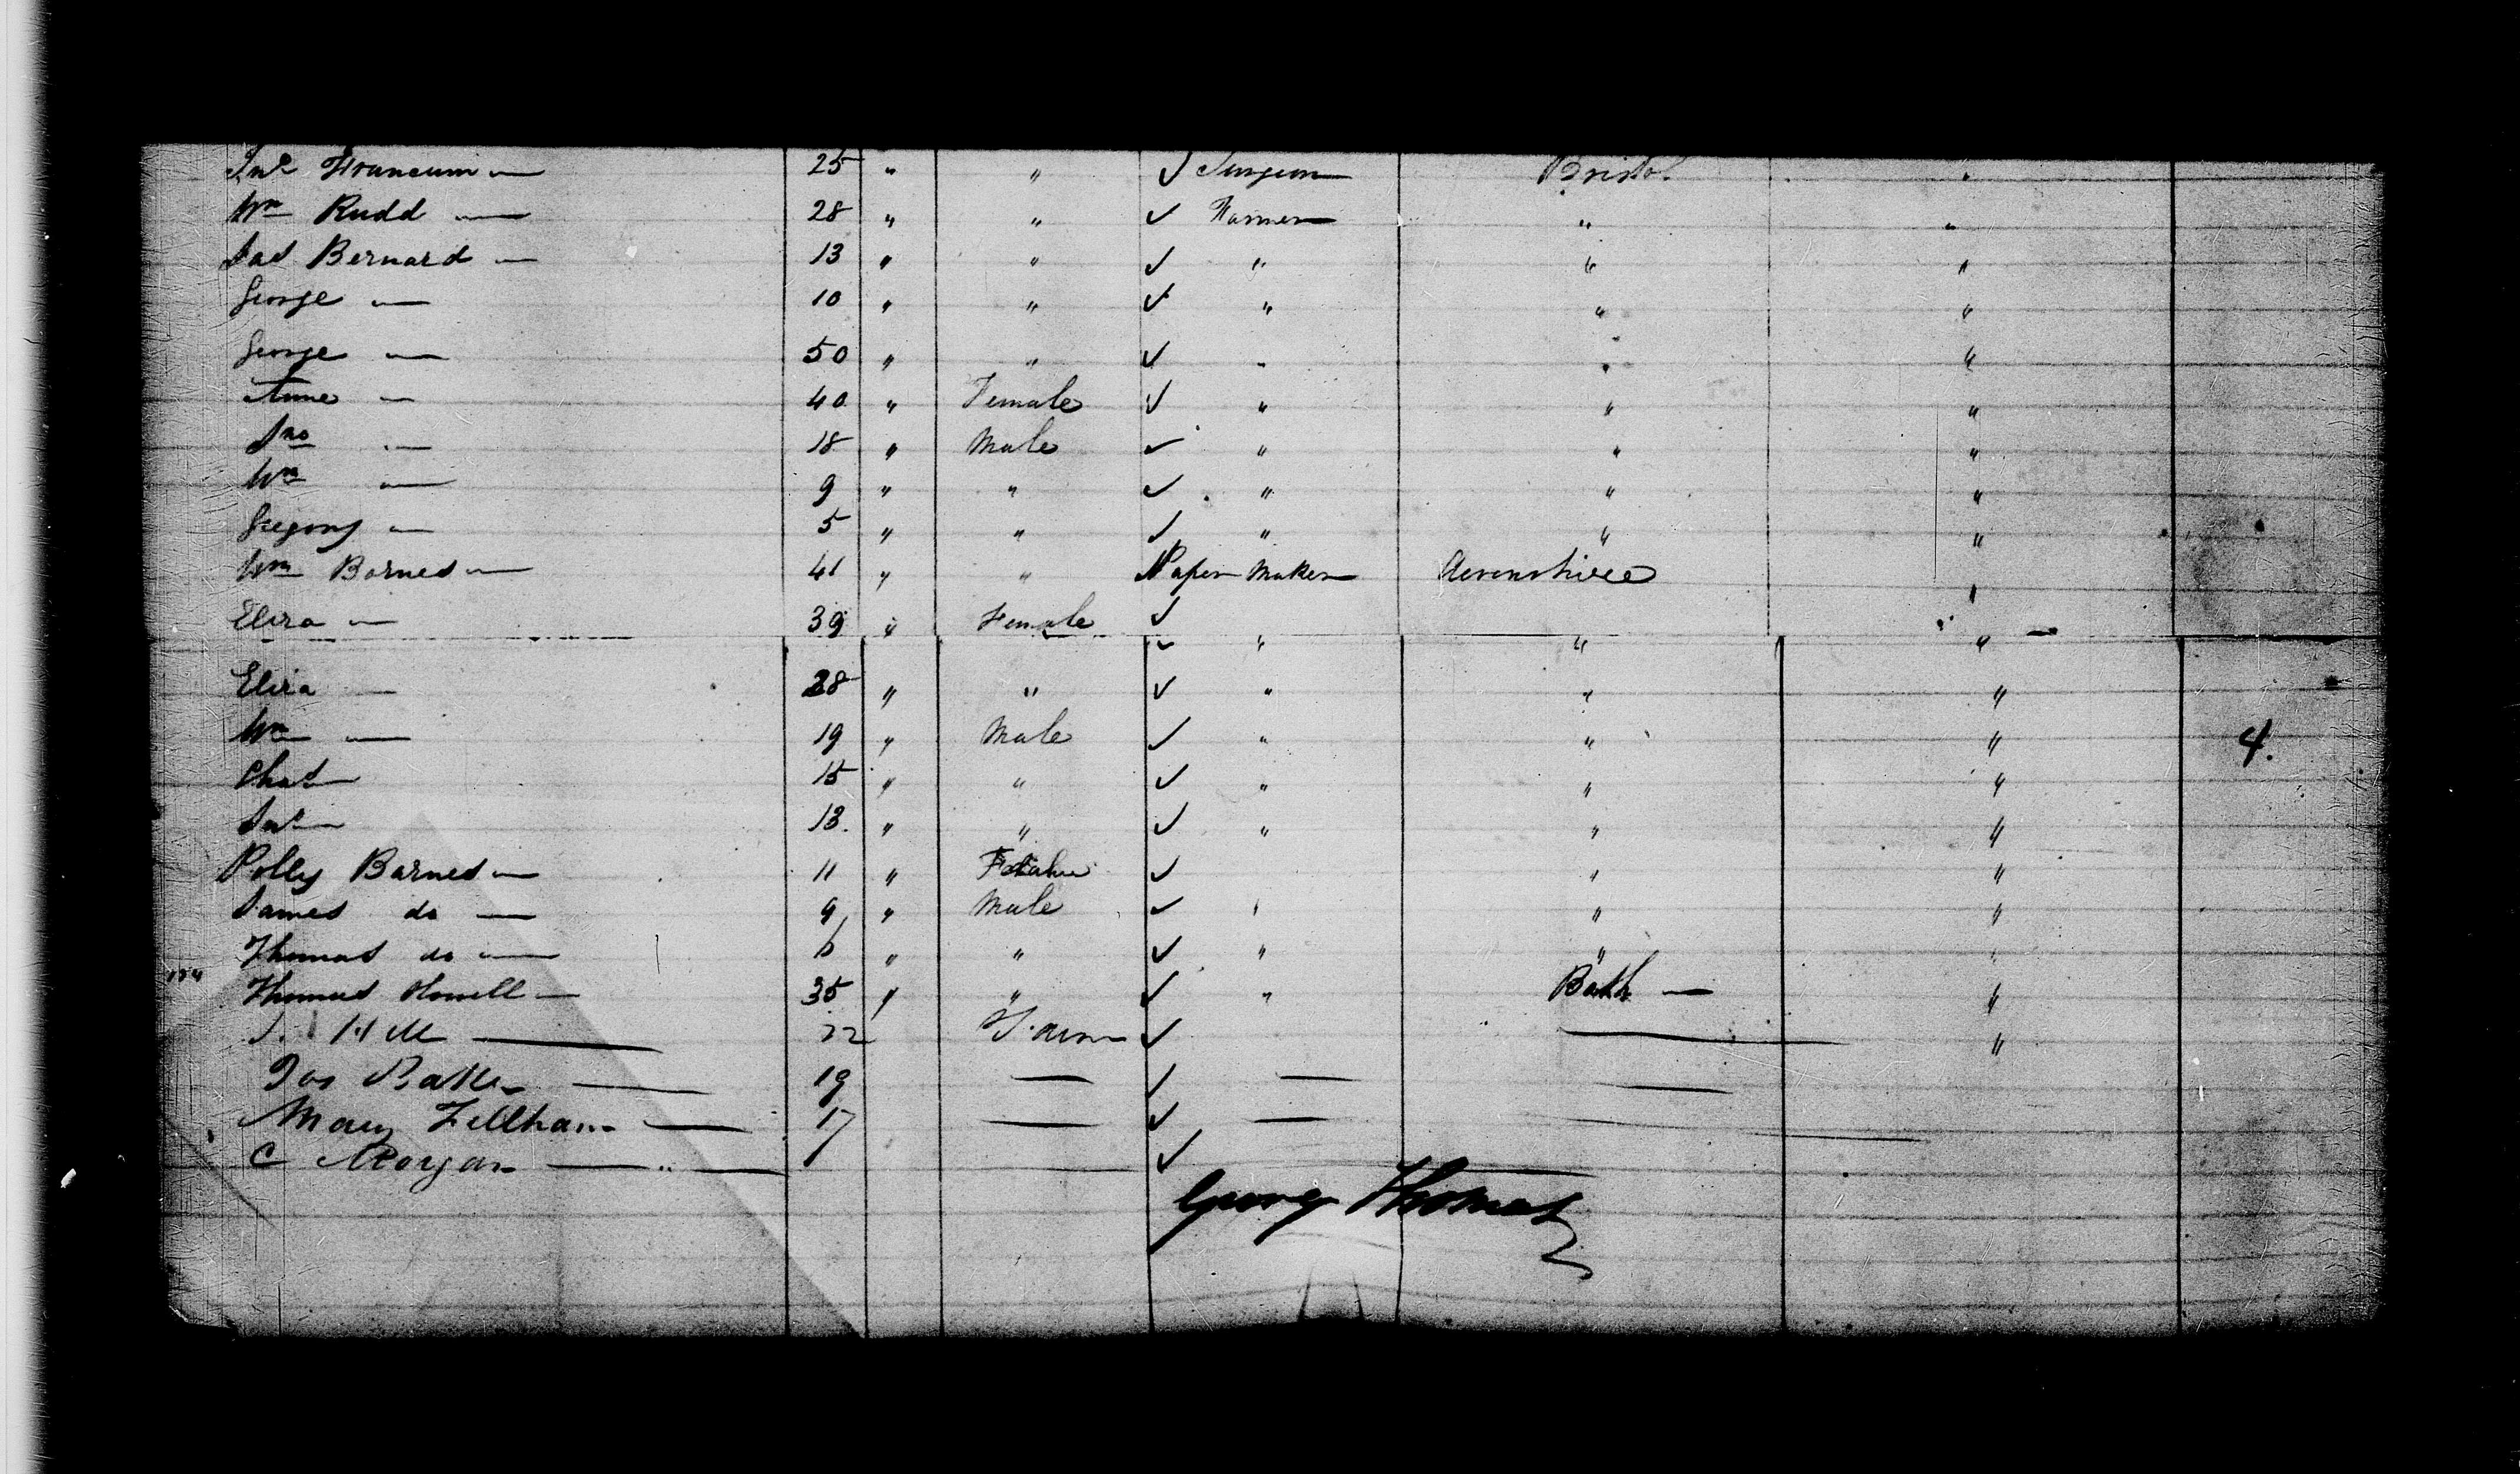 Jno Francum — 25 " " ✓ Surgeon Bristol "
Wm Rudd — 28 " " ✓ Farmer " "
Jas Bernard — 13 " " ✓ " " "
George — 10 " " ✓ " " "
George — 50 " " ✓ " " "
Anne — 40 " Female ✓ " " "
Jno — 18 " Male ✓ " " "
Wm — 9 " " ✓ " " "
Gregory — 5 " " ✓ " " "
Wm Barnes — 41 " " ✓ Paper Maker Devonshire "
Eliza — 39 " Female ✓
✓ " " "
Eliza — 28 " " ✓ " " "
Wm — 19 " Male ✓ " " " 4.
Chas — 15 " " ✓ " " "
Jno — 13. " " ✓ " " "
Polly Barnes — 11 " Female ✓ " "
James do — 9 " Male ✓ " " "
Thomas do — 6 " " ✓ " " "
Thomas Howell — 35 " " ✓ " Bath — "
J. Hill — 22 ✓ — "
Jos Baker — 19 — ✓ — —
Mary Fellham — 17 — ✓ — —
C Morgan — ✓ —
George Thomas